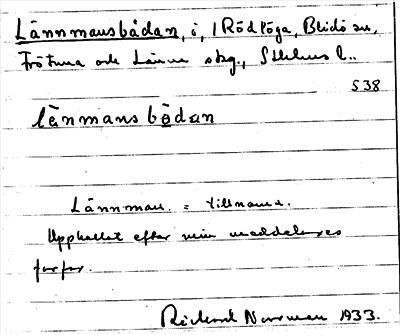 Lännmansbådan, i, i Rödlöga, Blidö sn,
Frötuna och Länna skg., Sthlms l..
S 38
länmansbådan
Lännman. = tillnamn.
Uppkallat efter min meddelares
farfar.
Rickard Norrman 1933.